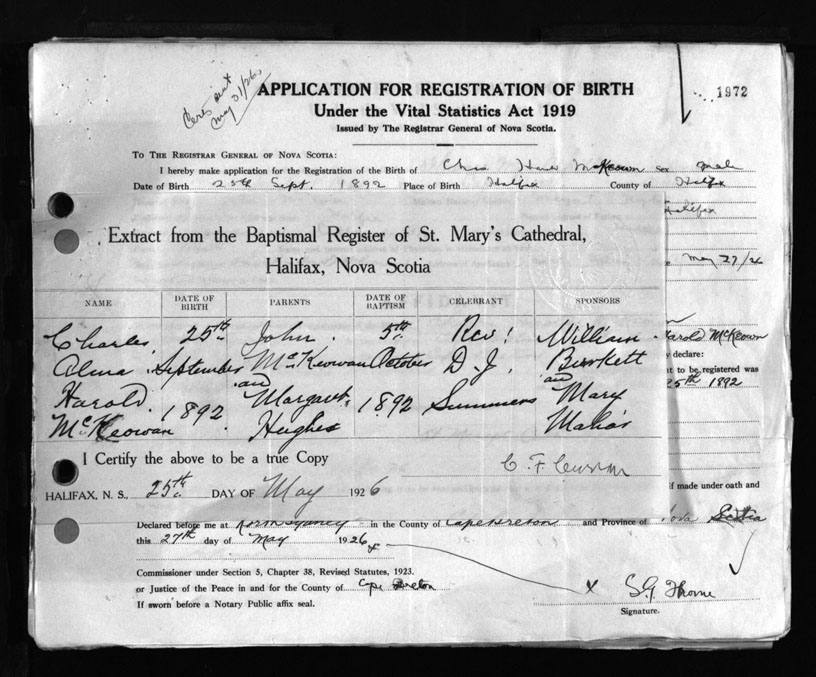 Cert sent
May 31/26
APPLICATION FOR REGISTRATION OF BIRTH
1972
Under the Vital Statistics Act 1919
Issued by The Registrar General of Nova Scotia.
To The Registrar General of Nova Scotia:
I hereby make application for the Registration of the Birth of Chas Harold McKeown Sex male
Date of Birth 25th Sept. 1892 Place of Birth Halifax County of Halifax
Halifax
May 27/26
Extract from the Baptismal Register of St. Mary's Cathedral,
Halifax, Nova Scotia
NAME DATE OF BIRTH PARENTS DATE OF BAPTISM CELEBRANT SPONSORS
Charles 25th John 5th Rev! William
Alma September McKeowan October D. J. Burkett
Harold 1892 and Margaret 1892 Summers and Mary
McKeowan Hughes
Harold McKeown
declare:
t to be registered was
25th 1892
I Certify the above to be a true Copy
HALIFAX, N. S., 25th DAY OF May 1926
if made under oath and
Declared before me at North Sydney in the County of Cape Breton and Province of Nova Scotia
this 27th day of May 1926
Commissioner under Section 5, Chapter 38, Revised Statutes, 1923.
or Justice of the Peace in and for the County of Cape Breton
If sworn before a Notary Public affix seal.
x S G Thorne
Signature.